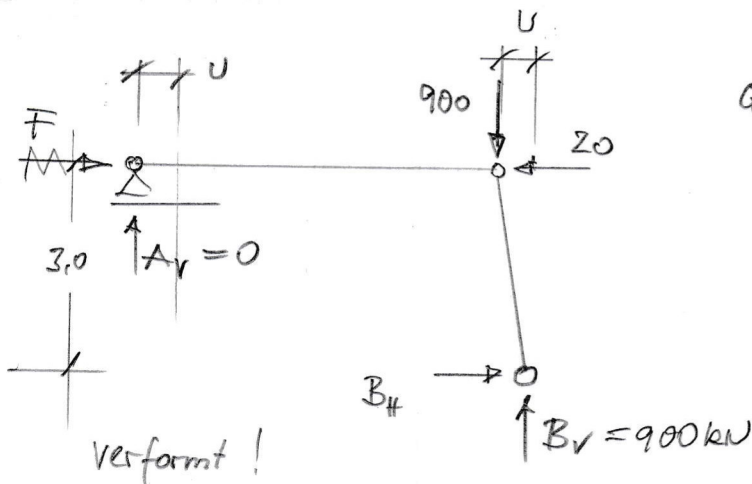 U
U
900
F
20
3,0
A_V = 0
B_H
B_V = 900 kN
verformt !